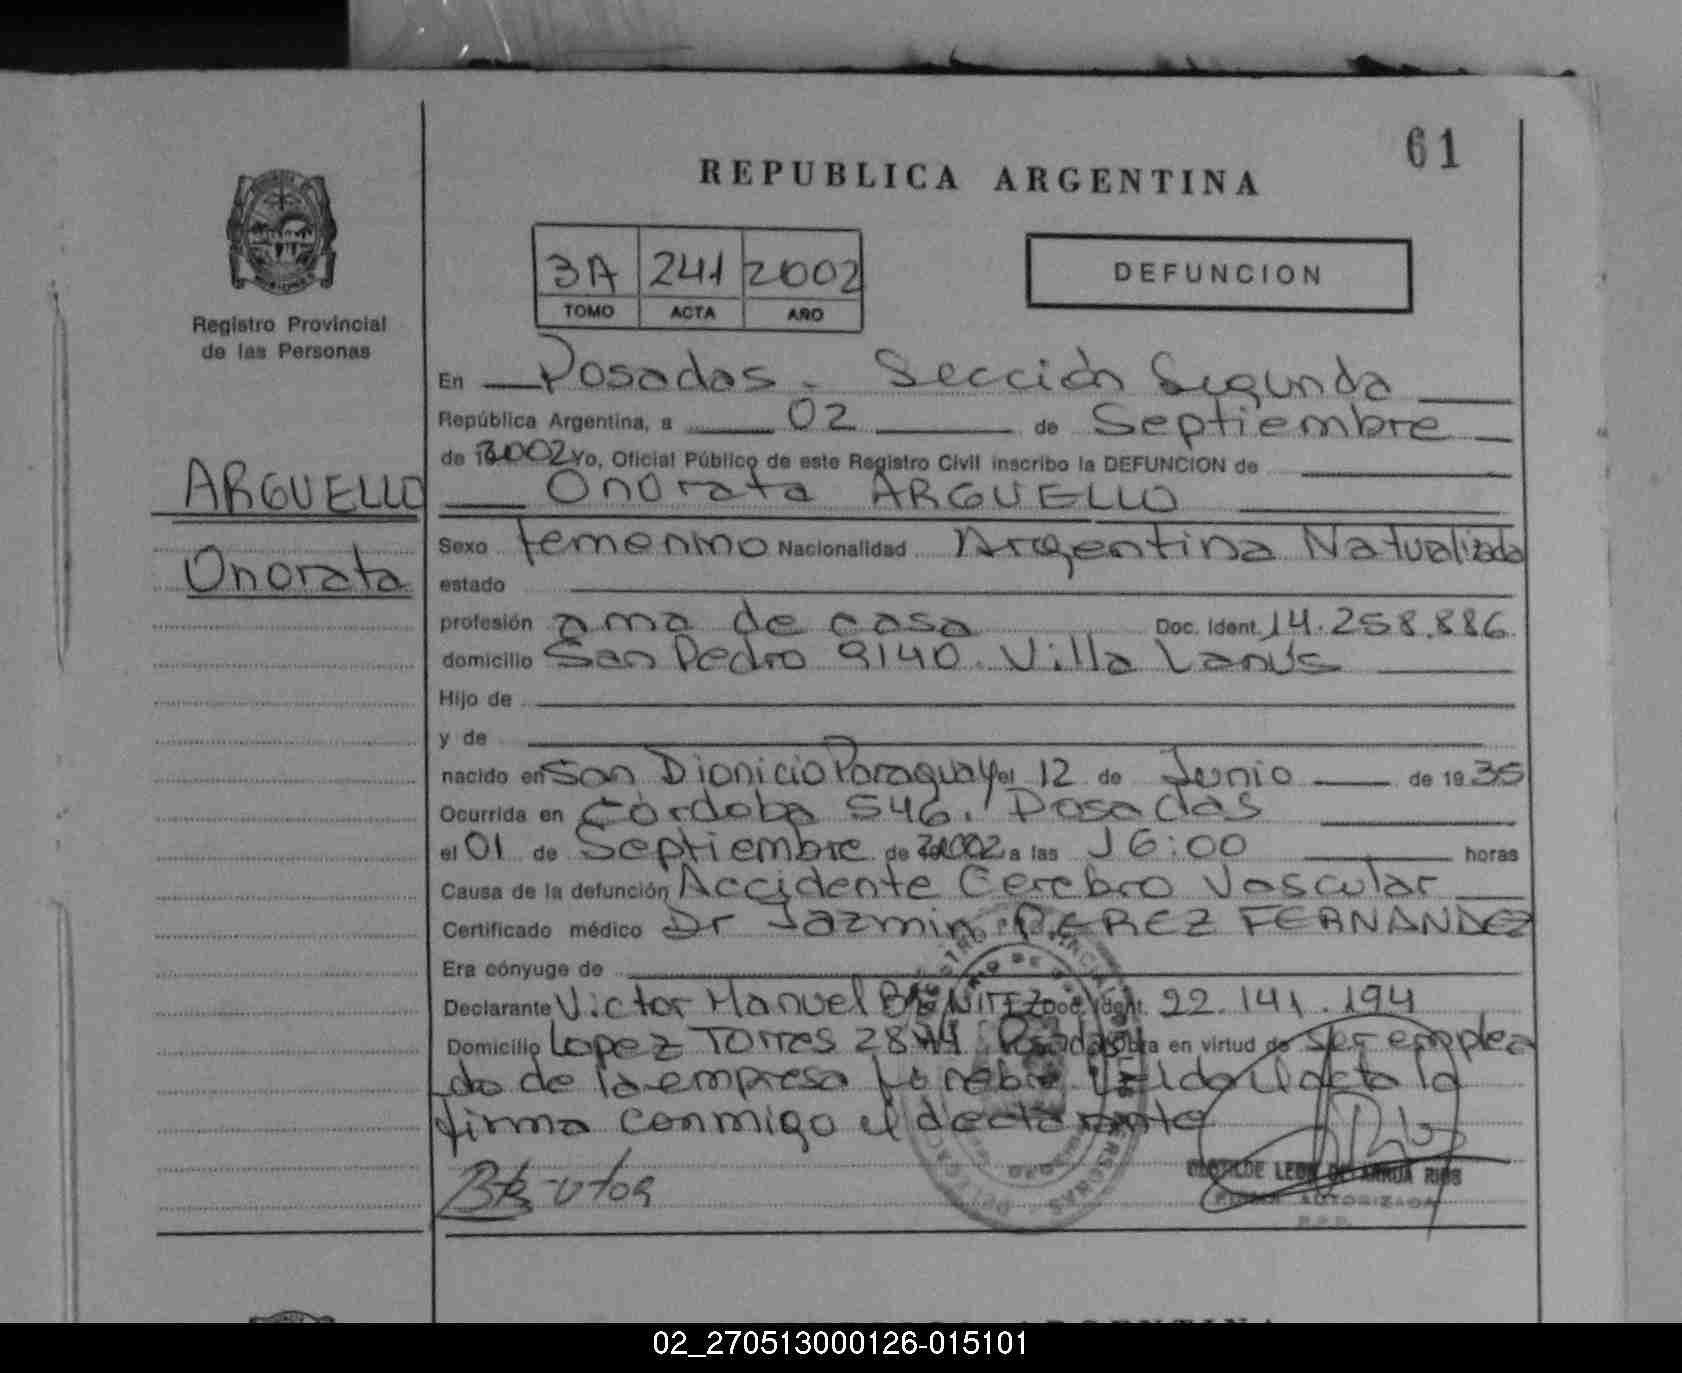 61
REPUBLICA ARGENTINA
3A 241 2002
TOMO ACTA AÑO
DEFUNCION
Registro Provincial
de las Personas
ARGUELLO
Onorata
En Posadas - Sección Segunda
República Argentina, a 02 de Septiembre
de 2002 Yo, Oficial Público de este Registro Civil inscribo la DEFUNCION de
Onorata ARGUELLO
Sexo femenino Nacionalidad Argentina Natualizada
estado
profesión ama de casa Doc. Ident. 14.258.886
domicilio San Pedro 9140. Villa Lanús
Hijo de
y de
nacido en San Dionicio Paraguay el 12 de Junio de 1935
Ocurrida en Córdoba 546. Posadas
el 01 de Septiembre de 2002 a las 16:00 horas
Causa de la defunción Accidente Cerebro Vascular
Certificado médico Dr Jazmin PEREZ FERNANDEZ
Era cónyuge de
Declarante Victor Manuel BENITEZ Doc. Ident. 22.141.194
Domicilio Lopez Torres Posadas Obra en virtud de ser emplea
do de la empresa funebre Leida el acta la
firma conmigo el declarante
CLOTILDE LEON DE ARRUA RIOS
FIRMA AUTORIZADA
R.P.P.
02_270513000126-015101